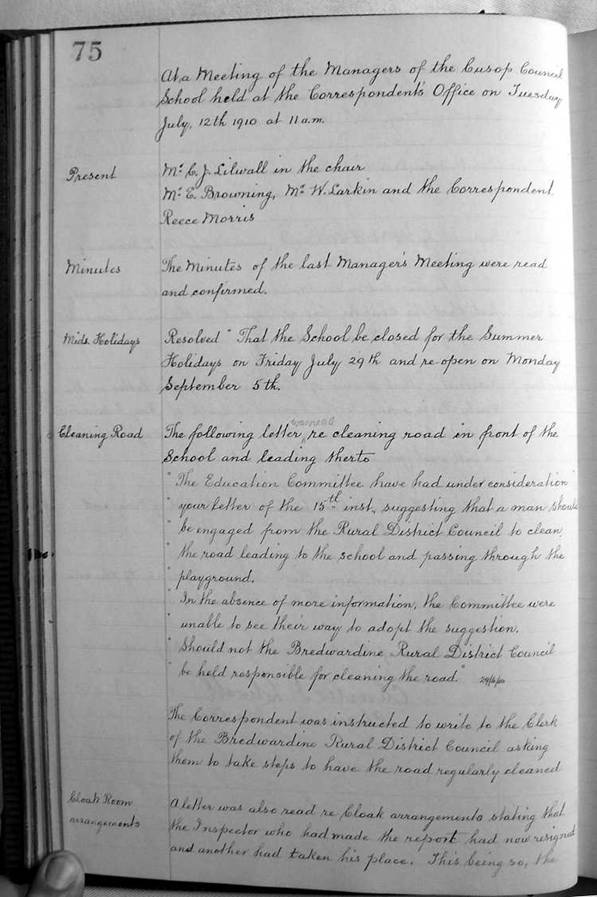 75
At a Meeting of the Managers of the Cusop Council
School held at the Correspondent's Office on Tuesday
July, 12th 1910 at 11 a.m.
Present
Mr C. J. Lilwall in the chair
Mr E. Browning, Mr W. Larkin and the Correspondent
Reece Morris
Minutes
The Minutes of the last Manager's Meeting were read
and confirmed.
Mids. Holidays
Resolved "That the School be closed for the Summer
Holidays on Friday July 29th and re-open on Monday
September 5th.
Cleaning Road
The following letter re cleaning road in front of the
School and leading therto
" The Education Committee have had under consideration
" your letter of the 15th inst, suggesting that a man should
" be engaged from the Rural District Council to clean
" the road leading to the school and passing through the
" playground.
" In the absence of more information, the Committee were
" unable to see their way to adopt the suggestion.
" Should not the Bredwardine Rural District Council
" be held responsible for cleaning the road"
The Correspondent was instructed to write to the Clerk
of the Bredwardine Rural District Council asking
them to take steps to have the road regularly cleaned
Cloak Room
arrangements
A letter was also read re Cloak arrangements stating that
the Inspector who had made the report had now resigned
and another had taken his place. This being so, the